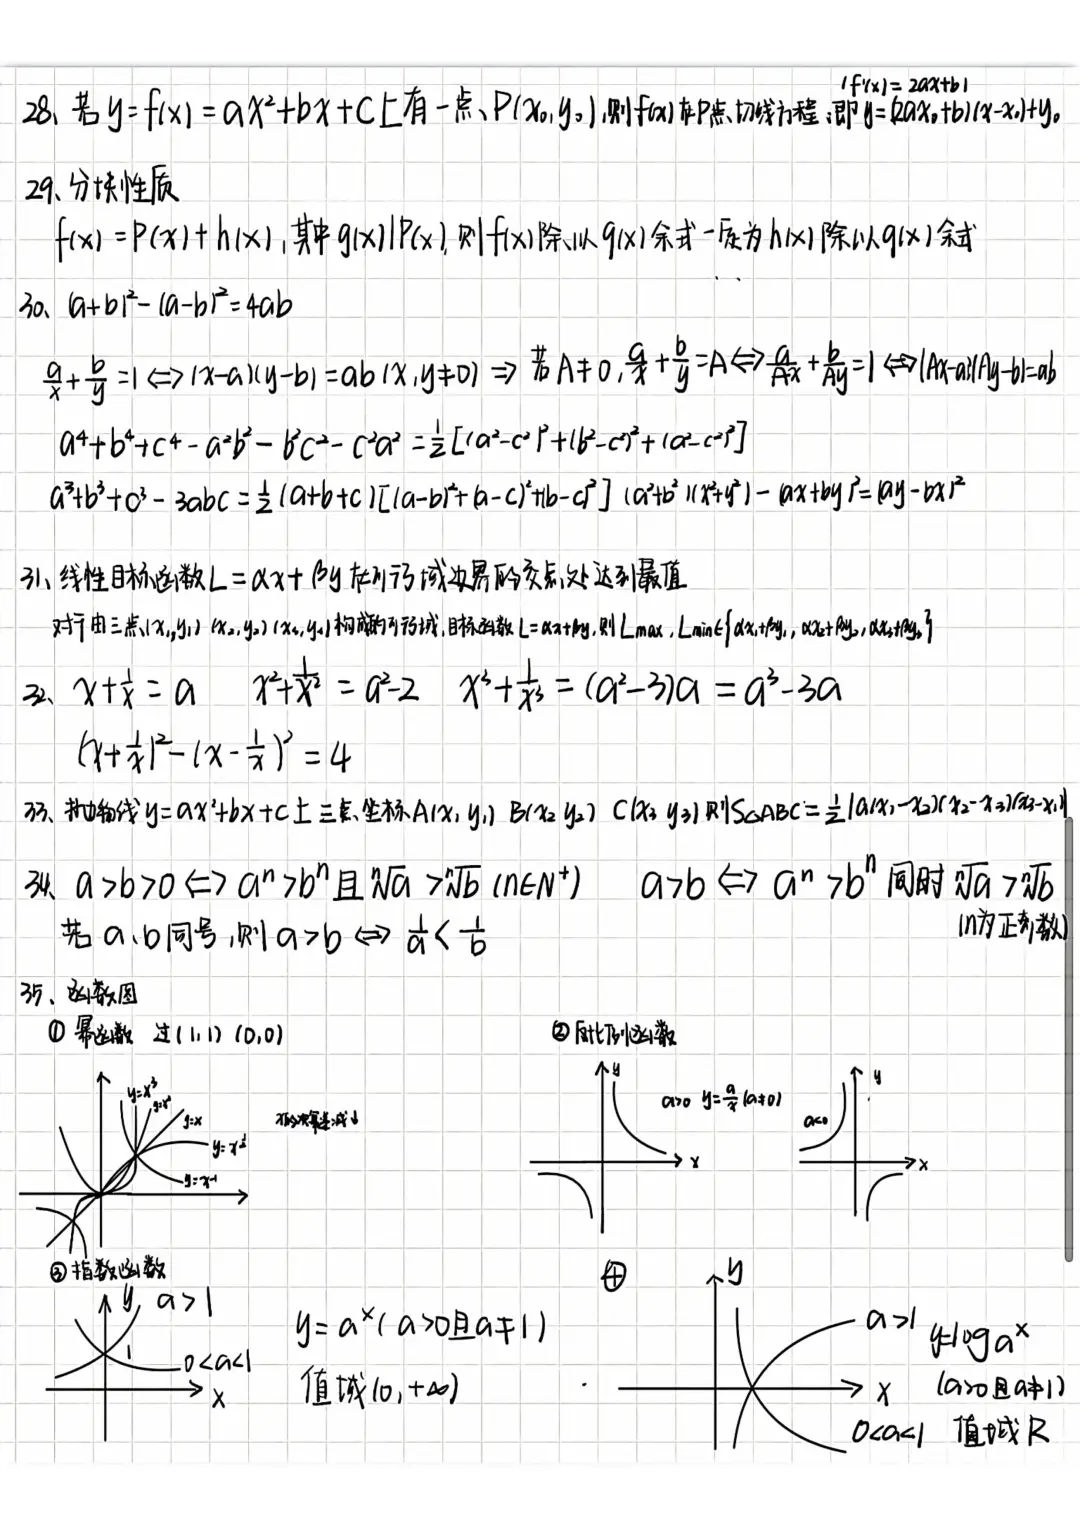 (f'(x)=2ax+b)
28、若y=f(x)=ax²+bx+c上有一点、P(x₀,y₀),则f(x)在P点切线方程,即y=(2ax₀+b)(x-x₀)+y₀
29、分块性质
f(x)=P(x)+h(x),其中g(x)|P(x),则f(x)除以g(x)余式一定为h(x)除以g(x)余式
30、(a+b)²-(a-b)²=4ab
a/x+b/y=1⇔(x-a)(y-b)=ab(x,y≠0)⇒若A≠0,a/x+b/y=A⇔a/Ax+b/Ay=1⇔(Ax-a)(Ay-b)=ab
a⁴+b⁴+c⁴-a²b²-b²c²-c²a²=1/2[(a²-c²)²+(b²-c²)²+(a²-c²)²]
a³+b³+c³-3abc=1/2(a+b+c)[(a-b)²+(a-c)²+(b-c)²] (a²+b²)(x²+y²)-(ax+by)²=(ay-bx)²
31、线性目标函数L=αx+βy在可行域边界的交点处达到最值
对于由三点(x₁,y₁)(x₂,y₂)(x₃,y₃)构成的可行域,目标函数L=αx+βy,则Lmax,Lmin∈{αx₁+βy₁,αx₂+βy₂,αx₃+βy₃}
32、x+1/x=a x²+1/x²=a²-2 x³+1/x³=(a²-3)a=a³-3a
(x+1/x)²-(x-1/x)²=4
33、抛物线y=ax²+bx+c上三点、坐标A(x₁y₁) B(x₂y₂) C(x₃y₃)则S△ABC=1/2|a(x₁-x₂)(x₂-x₃)(x₃-x₁)|
34、a>b>0⇔aⁿ>bⁿ且ⁿ√a>ⁿ√b(n∈N⁺) a>b⇔aⁿ>bⁿ同时ⁿ√a>ⁿ√b
(n为正奇数)
若a、b同号,则a>b⇔1/a<1/b
35、函数图
①幂函数 过(1,1)(0,0)
②反比例函数
y=x³
y=x²
y=x
y=x^½
y=x⁻¹
y
a>0 y=a/x(a≠0)
x
y
a<0
x
③指数函数
y a>1
1
0<a<1
x
y=aˣ(a>0且a≠1)
值域(0,+∞)
④
y
a>1
x
0<a<1
y=logaˣ
(a>0且a≠1)
值域R